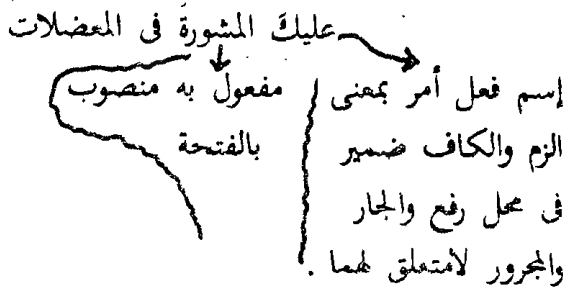 عليكَ المشورةَ فى المعضلات
إسم فعل أمر بمعنى
الزم والكاف ضمير
فى محل رفع والجار
والمجرور لامتعلق لهما .
مفعول به منصوب
بالفتحة